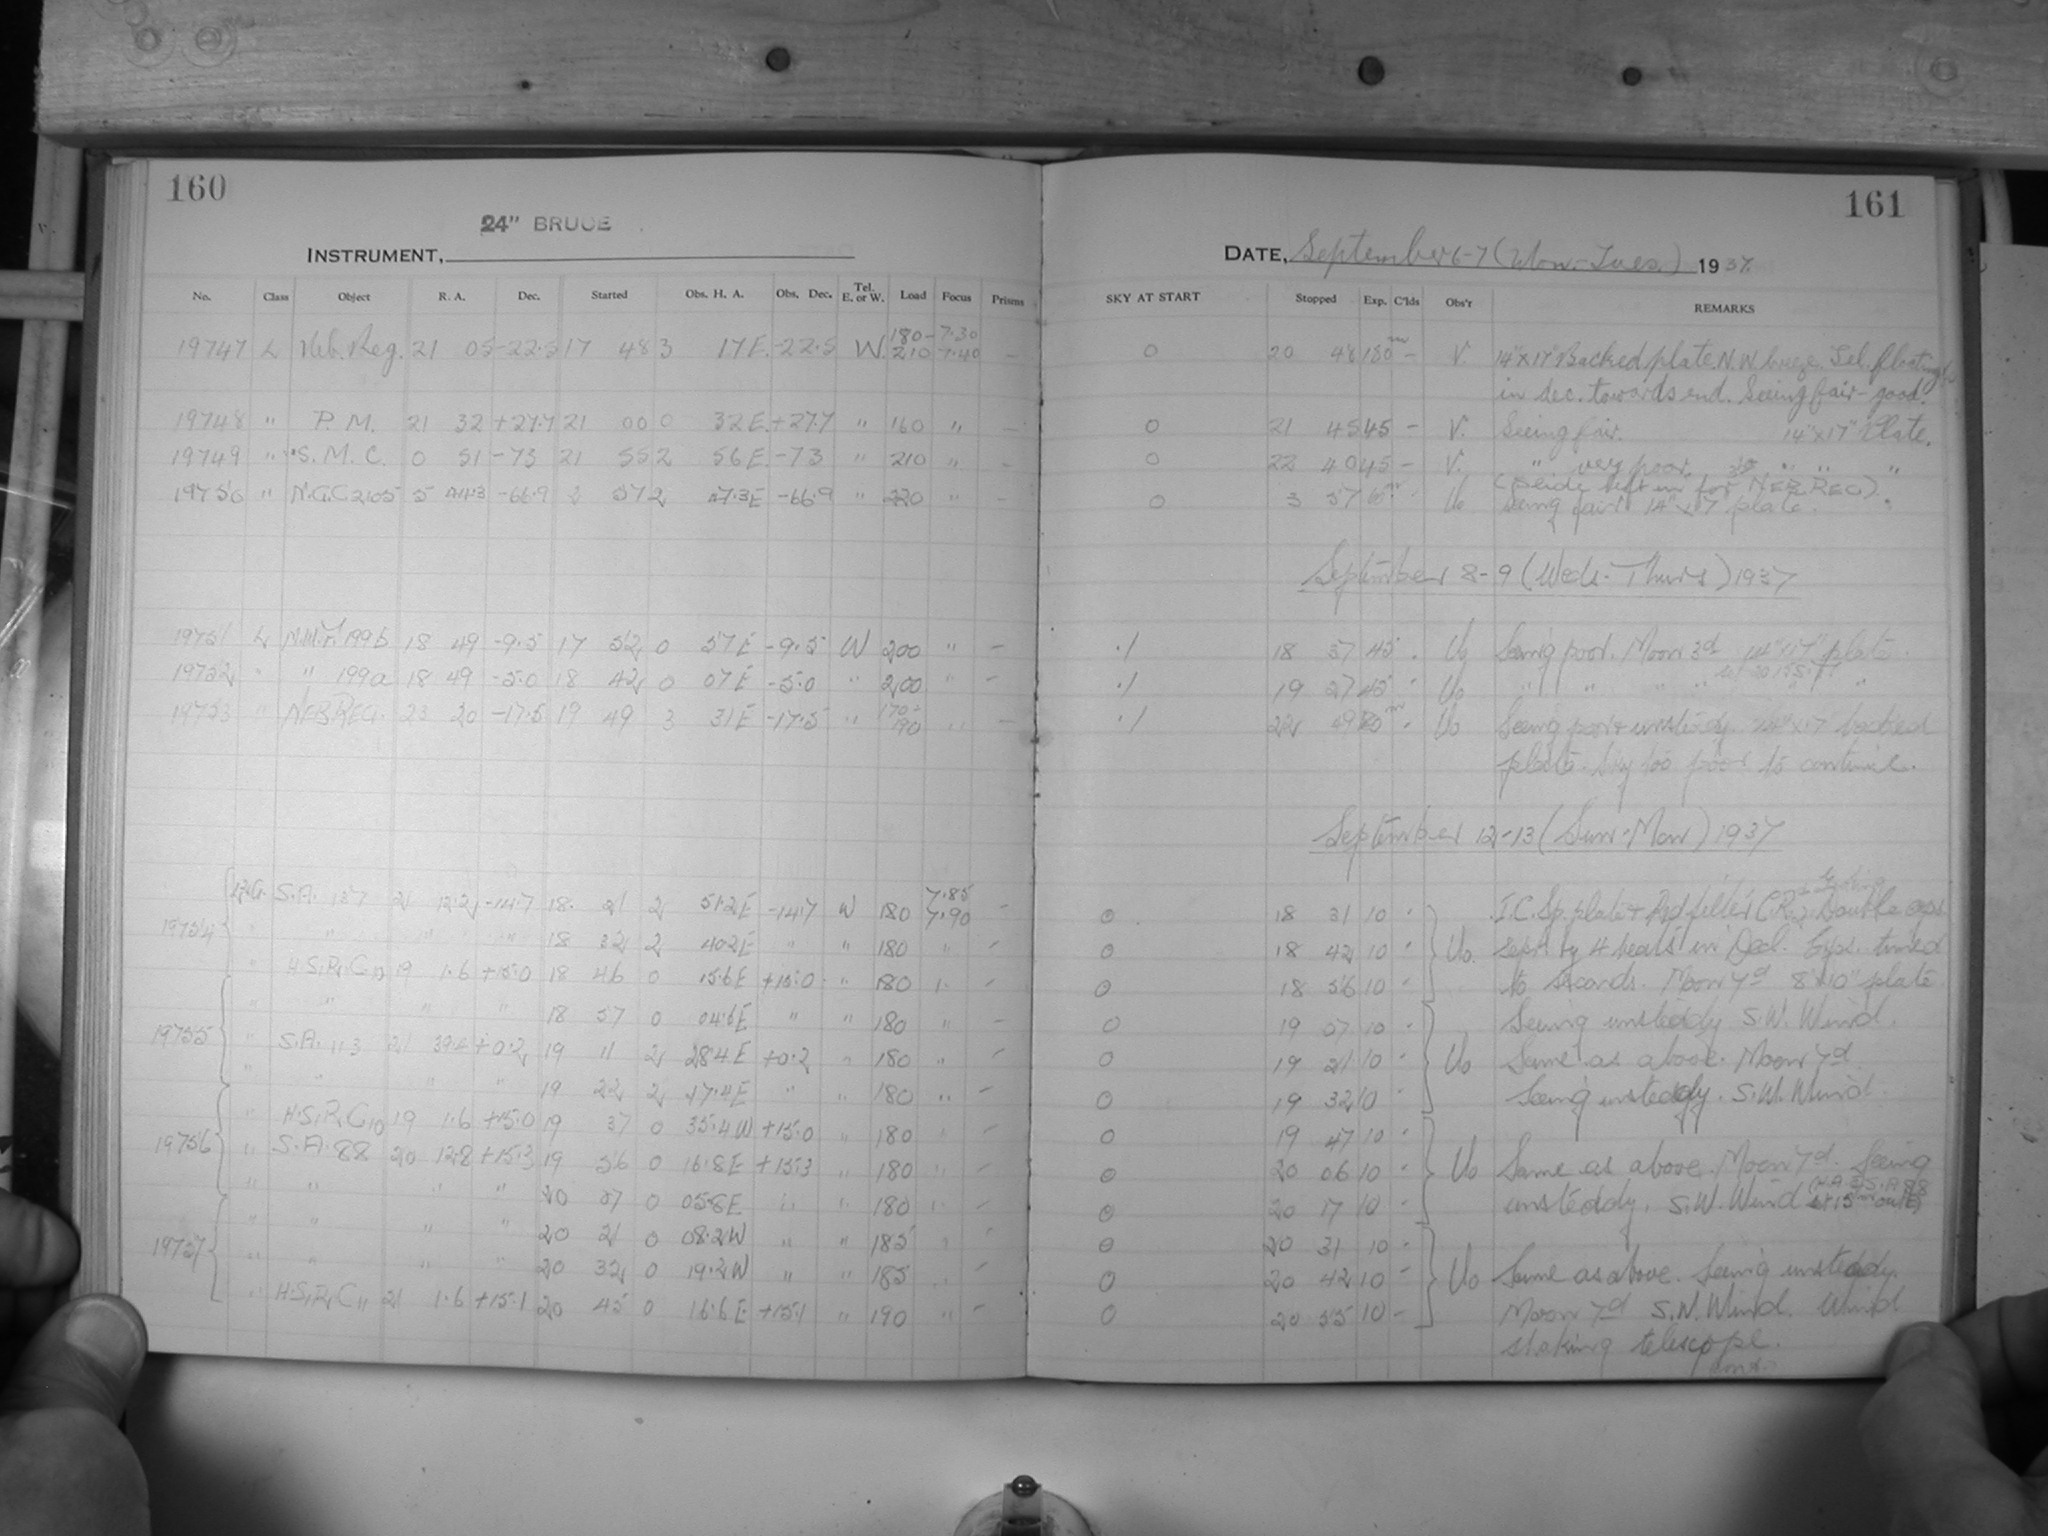 160
24" BRUCE
INSTRUMENT,
No. Class Object R. A. Dec. Started Obs. H. A. Obs. Dec. Tel. E. or W. Load Focus Prisms
19747 L Neb. Reg. 21 05 -22.5 17 48 3 17 E. -22.5 W. 180- 210 7.30 7.40 -
19748 " P. M. 21 32 +27.7 21 00 0 32 E. +27.7 " 160 " -
19749 " S. M. C. 0 51 -73 21 55 2 56 E. -73 " 210 " -
19750 " N.G.C 2105 5 -66.9 2 57 2 47.3E -66.9 " 220 " -
19751 L 199b 18 49 -9.5 17 52 0 57 E -9.5 W 200 " -
19752 " " 199a 18 49 -5.0 18 42 0 07 E -5.0 " 200 " -
19753 " NEB.REG. 23 20 -17.5 19 49 3 31 E -17.5 " 170- 190 " -
19754 S.A. 137 21 12.2 -14.7 18. 21 2 51.2E -14.7 W 180 7.85 7.90 -
" " " " 18 32 2 40.2E " " 180 " -
" 19 1.6 +15.0 18 46 0 15.6E +15.0 " 180 " -
19755 " " " " 18 57 0 04.6E " " 180 " -
" S.A. 113 21 39.4 +0.2 19 11 2 28.4 E +0.2 " 180 " -
" " " " 19 22 2 17.4E " " 180 " -
19756 " 19 1.6 +15.0 19 37 0 35.4W +15.0 " 180 " -
" S.A. 88 20 12.8 +15.3 19 56 0 16.8E +15.3 " 180 " -
" " " " 20 07 0 05.8E " " 180 " -
19757 " " " " 20 21 0 08.2W " " 185 " -
" " " " 20 32 0 19.2W " " 185 " -
" 21 1.6 +15.1 20 45 0 16.6E +15.1 " 190 " -
161
DATE, September 6-7 (Mon.-Tues.) 1937.
SKY AT START Stopped Exp. C'lds Obs'r REMARKS
0 20 48 180m - V. 14"x17" Backed plate. N.W. breeze. Tel. floating
in dec. towards end. Seeing fair - good.
0 21 45 45 - V. Seeing fair. 14"x17" Plate.
0 22 40 45 - V. " very poor. " " "
(Slide left in for NEB REG).
0 3 57 60m " Uo Seeing fair. 14"x17" plate.
September 8-9 (Weds-Thurs) 1937
.1 18 37 45 . Uo Seeing poor. Moon 3d 14"x17" plate.
.1 19 27 45 " Uo " " " " " "
.1 22 49 180m " Uo Seeing poor & unsteady. 14"x17" backed
plate. Sky too poor to continue.
September 12-13 (Sun-Mon) 1937
0 18 31 10 " I.C. Sp. plate & Red filter Double exps
0 18 42 10 " Uo. sept. by 4 beats in Decl. Exps. timed
0 18 56 10 " to seconds. Moon 7d 8x10" plate
0 19 07 10 " Seeing unsteady S.W. Wind.
0 19 21 10 " Uo Same as above. Moon 7d
0 19 32 10 " Seeing unsteady. S.W. Wind.
0 19 47 10 "
0 20 06 10 " Uo Same as above. Moon 7d. Seeing
0 20 17 10 " unsteady. S.W. Wind
0 20 31 10 "
0 20 42 10 " Uo Same as above. Seeing unsteady.
0 20 55 10 - Moon 7d S.W. Wind. Wind
shaking telescope.